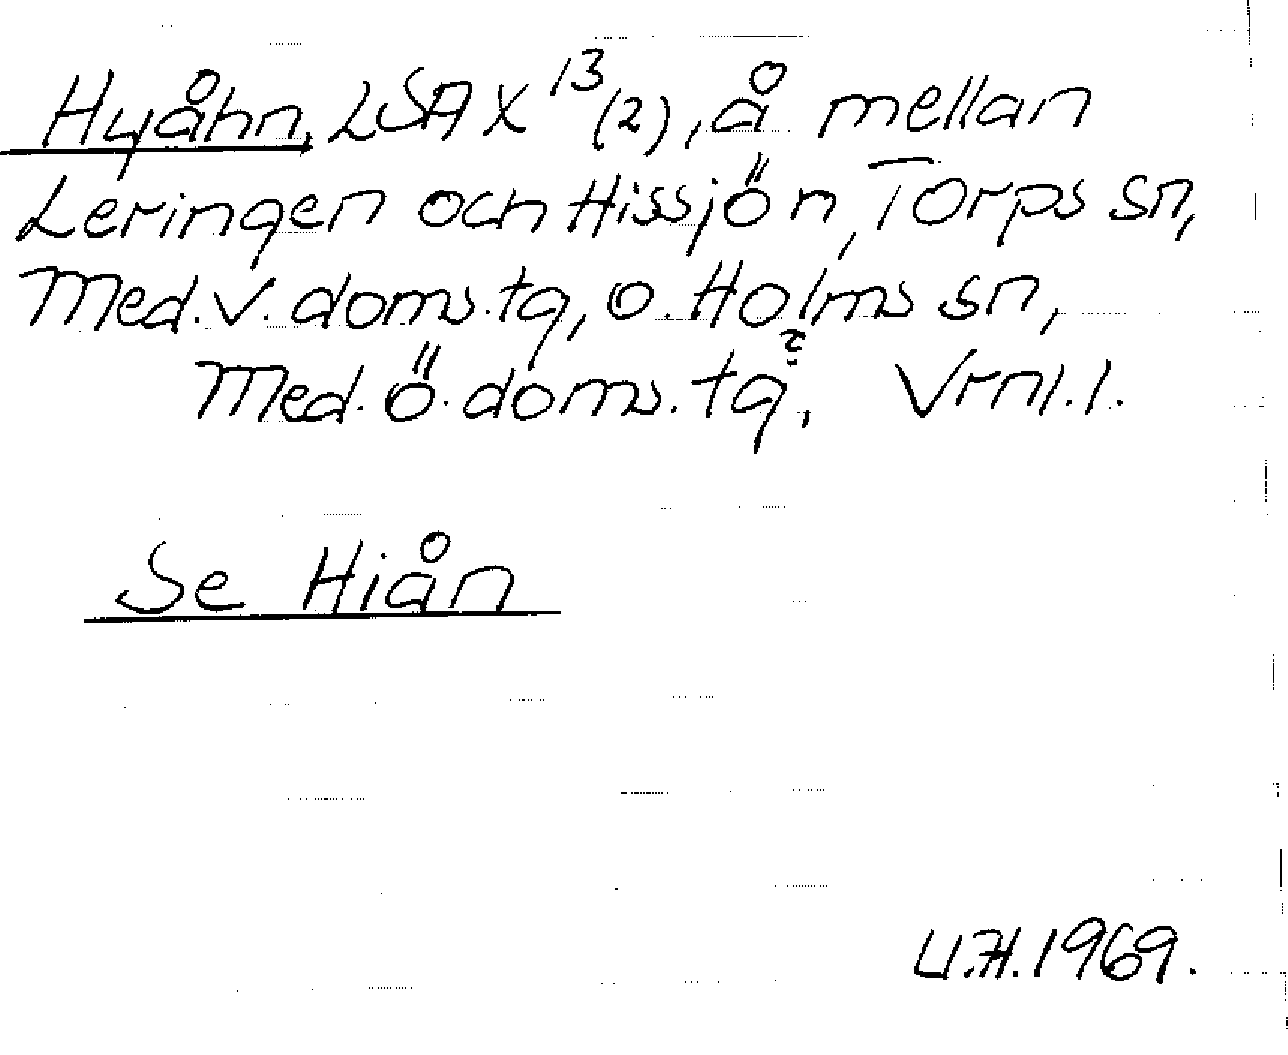 Hyåhn, LSA X 13 (2), å mellan
Leringen och Hissjön, Torps sn,
Med. V. doms. tg, o. Holms sn,
Med. Ö. doms. tg?, Vrnl. l.
Se Hiån
U.H. 1969.